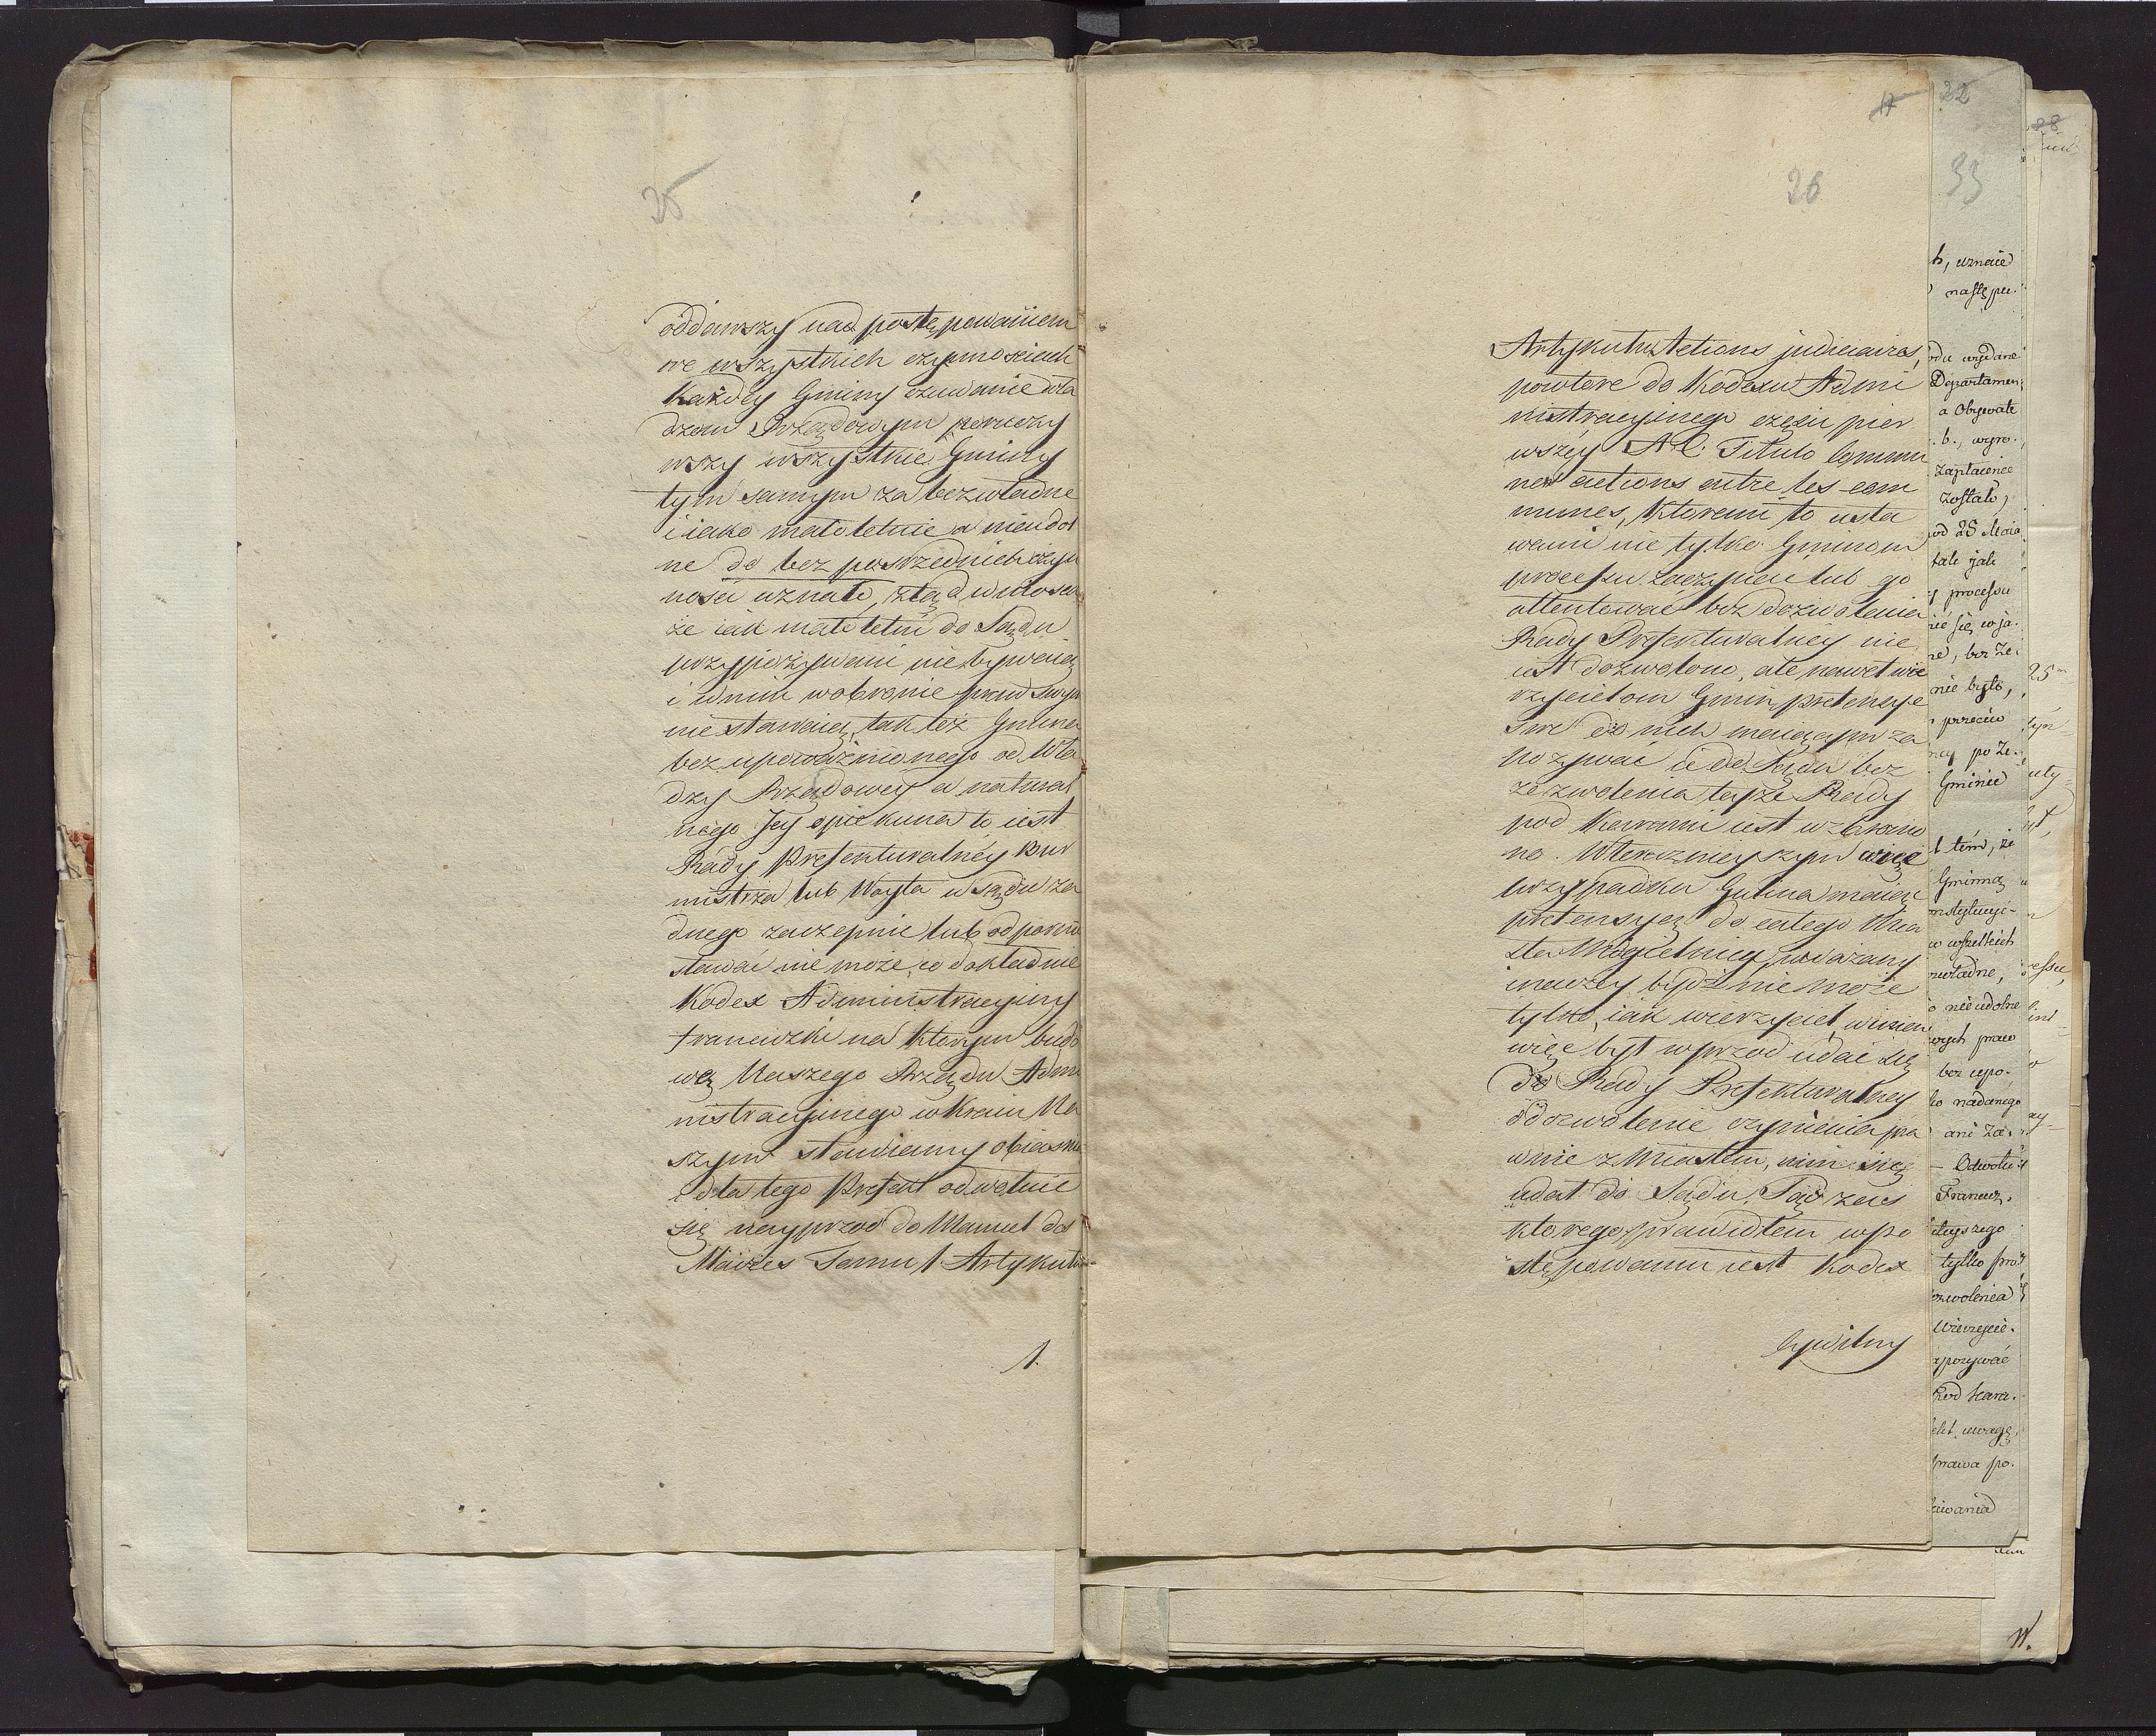 25
oddawszy nad postępowaniem
we wszystkich czynnościach
każdey Gminy czuwanie wła
dzom Rządowym poruczy
wszy wszystkie Gminy
tym samym za bezwładne
i iako małoletnie a nieudol
ne do bezpośrzednich czyn
ności uznało, ztąd wniosek
że iak małoletni do Sądu
przypuszczani nie bywaią
i w nim w obronie praw swych
nie stawaią, tak też Gmina
bez upoważnionego od Wła
dzy Rządowey a natural
nego Jey opiekuna to iest
Rady Prefekturalney Bur
mistrza lub Woyta w sądzie ża
dnego zaczepnie lub odpornie
stawać nie może, co dokładnie
Kodex Administracyiny
francuzki na którym budo
wę Naszego Rządu Admi
nistracyinego w Kraiu Na
szym stawiamy obiaśnia
i dla tego Prefekt odwołuie
się nayprzod do Manuel des
Maires Tomu 1 Artykułu
1.
17
26
Artykułu Actions judiciaires,
powtore do Kodexu Admi
nistracyinego części pier
wszey A. C. Titulo Commu
nes actions entre les com
munes, któremi to usta
wami nie tylko Gminom
processu zaczynać lub go
attentować bez dozwolenia
Rady Prefekturalney nie
iest dozwolono, ale nawet wie
rzycielom Gmin pretensye
swe do nich maiącym za
pozywać ie do Sądu bez
zezwolenia teyże Rady
pod karami iest wzbronio
no. W terazniejszym więc
przypadku Gmina maiąca
pretensyą do całego Mia
sta Mogielnicy, uważany
inaczey bydź nie może
tylko, iak wierzyciel, winien
więc był wprzod udać się
do Rady Prefekturalney
o dozwolenie czynienia pra
wnie z Miastem, nim się
udał do Sądu, Sąd zaś
którego prawidłem w po
stępowaniu iest Kodex
Cywilny
22
33
h, uznaie
następu.
wydane
Departamen
a Obywate
. b., wyro.
Zapłacenie
Zostało,
od 28 Maia
tak jak
processu
nie się w ja.
bez Ze.
nie było,
przeciw
po Ze.
Gminie
t tém, że
Gminną
nstytucyi-
w wszelkich
zwładne,
o nieudolne
wych praw
bez upo.
ko nadanego
ani Za.
— Odwołu
Francuz.
tylko pra
ozwolenia
Wierzycie.
apozywać
Pod kara.
ekt uwagę,
prawa po.
28
25
N.